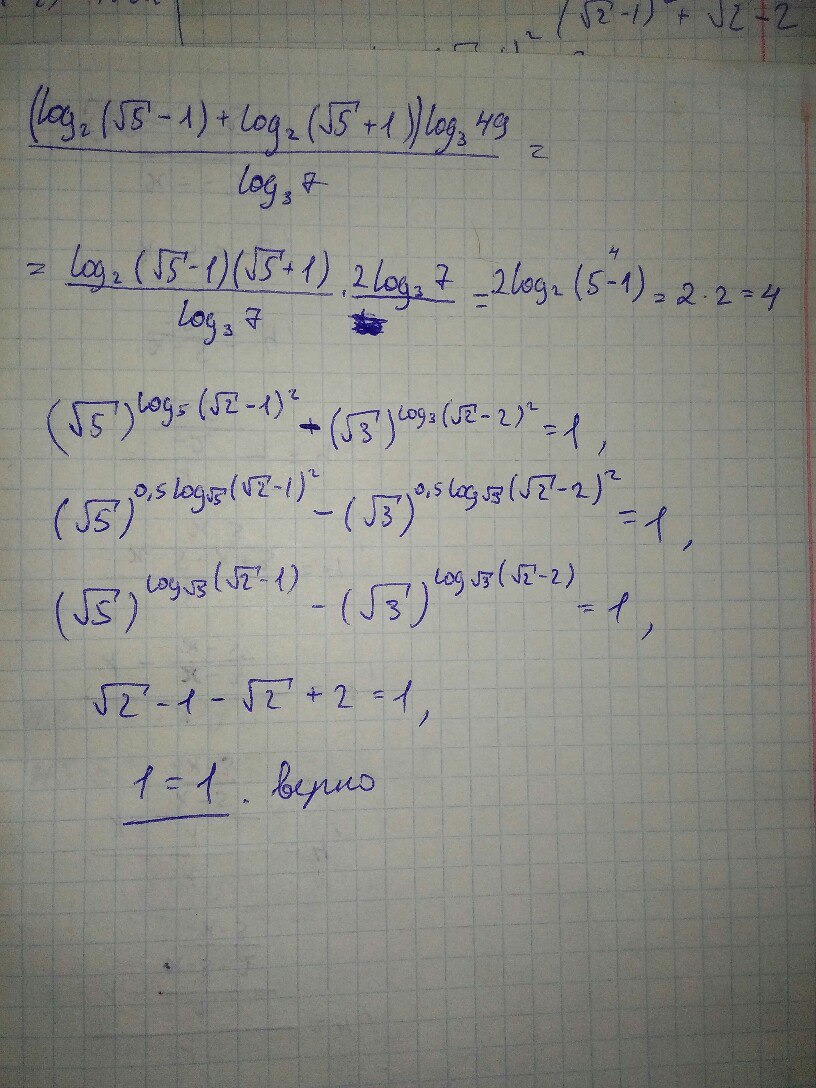 (√2-1)² + √2-2
(log₂(√5-1)+log₂(√5+1))log₃49 / log₃7 =
= log₂(√5-1)(√5+1) / log₃7 · 2log₃7 = 2log₂(5-1) 4 = 2·2=4
(√5)^log₅(√2-1)² - (√3)^log₃(√2-2)² = 1,
(√5)^0,5log_√5(√2-1)² - (√3)^0,5log_√3(√2-2)² = 1,
(√5)^log_√3(√2-1) - (√3)^log_√3(√2-2) = 1,
√2-1-√2+2=1,
1=1. верно